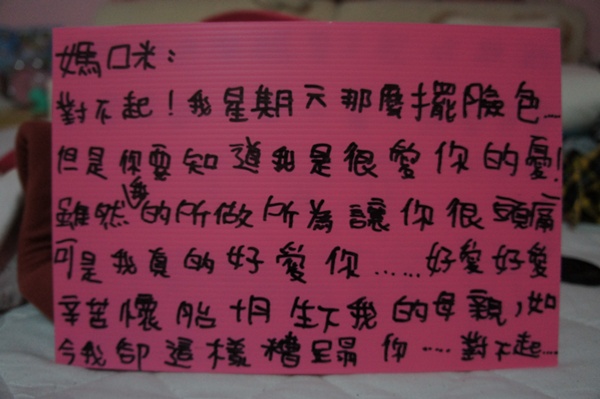 媽咪：
對不起！我星期天那麼擺臉色……
但是你要知道我是很愛你的憂!
雖然我的所做所為讓你很頭痛
可是我真的好愛你……好愛好愛
辛苦懷胎十月生下我的母親，如
今我卻這樣糟蹋你……對不起……